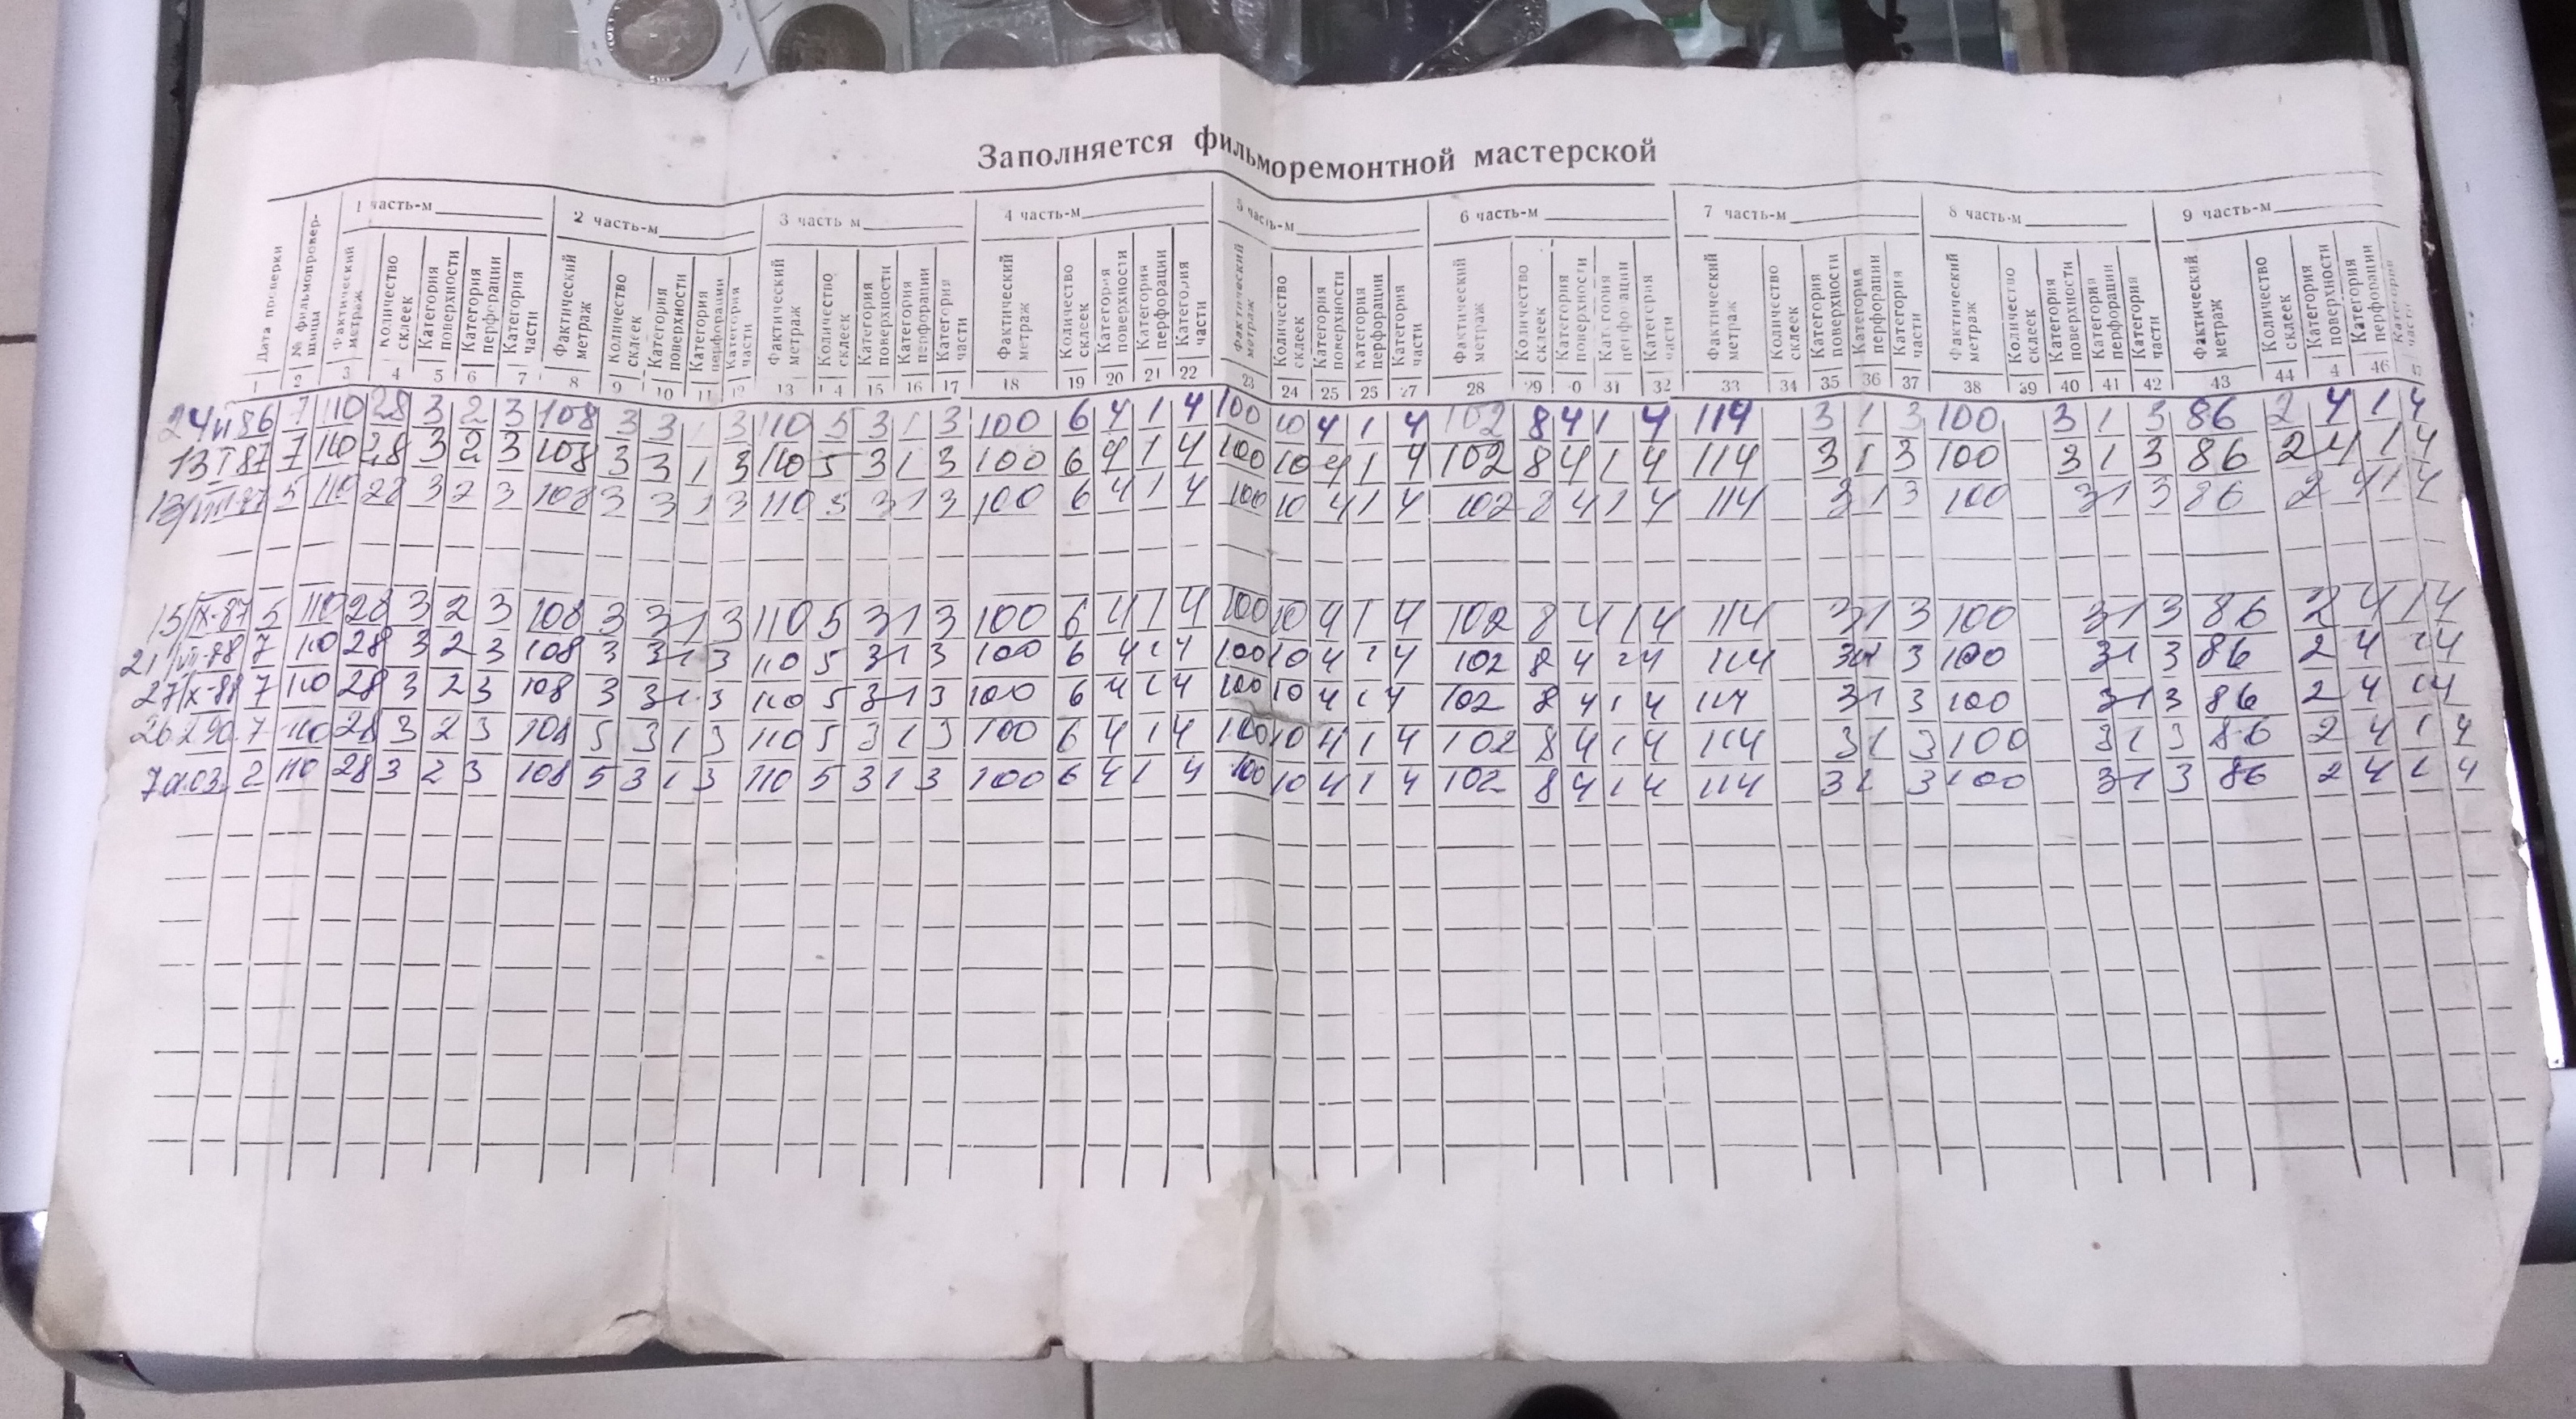 Заполняется фильморемонтной мастерской
1 часть-м 2 часть-м 3 часть м 4 часть-м 5 часть-м 6 часть-м 7 часть-м 8 часть-м 9 часть-м
Дата проверки № фильмопроверщицы Фактический метраж Количество склеек Категория поверхности Категория перфорации Категория части Фактический метраж Количество склеек Категория поверхности Категория перфорации Категория части Фактический метраж Количество склеек Категория поверхности Категория перфорации Категория части Фактический метраж Количество склеек Категория поверхности Категория перфорации Категория части Фактический метраж Количество склеек Категория поверхности Категория перфорации Категория части Фактический метраж Количество склеек Категория поверхности Категория перфорации Категория части Фактический метраж Количество склеек Категория поверхности Категория перфорации Категория части Фактический метраж Количество склеек Категория поверхности Категория перфорации Категория части Фактический метраж Количество склеек Категория поверхности Категория перфорации Категория части
1 2 3 4 5 6 7 8 9 10 11 12 13 14 15 16 17 18 19 20 21 22 23 24 25 25 27 28 29 0 31 32 33 34 35 36 37 38 39 40 41 42 43 44 4 46 47
24 VI 86 7 110 28 3 2 3 108 3 3 1 3 110 5 3 1 3 100 6 4 1 4 100 10 4 1 4 102 8 4 1 4 114 3 1 3 100 3 1 3 86 2 4 1 4
13 I 87 7 110 28 3 2 3 108 3 3 1 3 110 5 3 1 3 100 6 4 1 4 100 10 4 1 4 102 8 4 1 4 114 3 1 3 100 3 1 3 86 2 4 1 4
13/VIII-87 5 110 28 3 2 3 108 3 3 1 3 110 5 3 1 3 100 6 4 1 4 100 10 4 1 4 102 8 4 1 4 114 3 1 3 100 3 1 3 86 2 4 1 4
15/IX-87 5 110 28 3 2 3 108 3 3 1 3 110 5 3 1 3 100 6 4 1 4 100 10 4 1 4 102 8 4 1 4 114 3 1 3 100 3 1 3 86 2 4 1 4
21/VII-88 7 110 28 3 2 3 108 3 3 1 3 110 5 3 1 3 100 6 4 1 4 100 10 4 1 4 102 8 4 1 4 114 3 1 3 100 3 1 3 86 2 4 1 4
27/X-88 7 110 28 3 2 3 108 3 3 1 3 110 5 3 1 3 100 6 4 1 4 100 10 4 1 4 102 8 4 1 4 114 3 1 3 100 3 1 3 86 2 4 1 4
26 I 90. 7 110 28 3 2 3 108 5 3 1 3 110 5 3 1 3 100 6 4 1 4 100 10 4 1 4 102 8 4 1 4 114 3 1 3 100 3 1 3 86 2 4 1 4
2 110 28 3 2 3 108 5 3 1 3 110 5 3 1 3 100 6 4 1 4 100 10 4 1 4 102 8 4 1 4 114 3 1 3 100 3 1 3 86 2 4 1 4